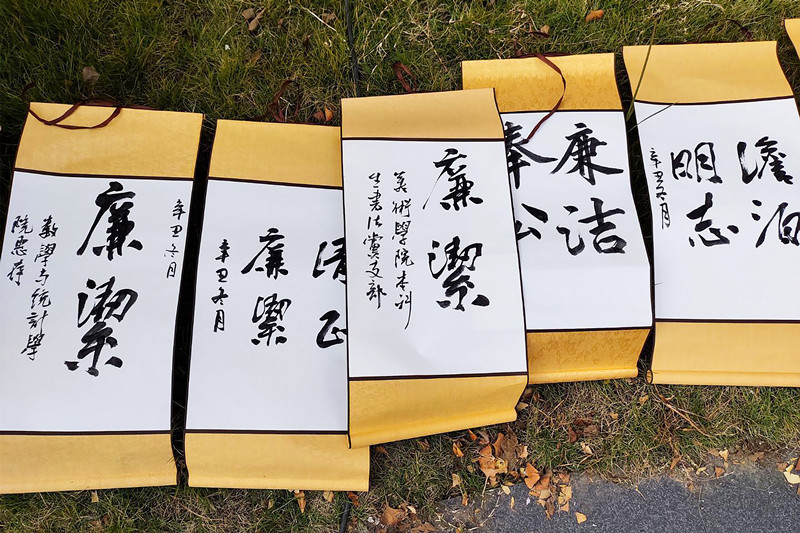 辛丑冬月
廉潔
數學与統計學
院惠存
清正
廉潔
辛丑冬月
廉潔
美術學院本科
生書法黨支部
廉洁
奉公
澹泊
明志
辛丑冬月